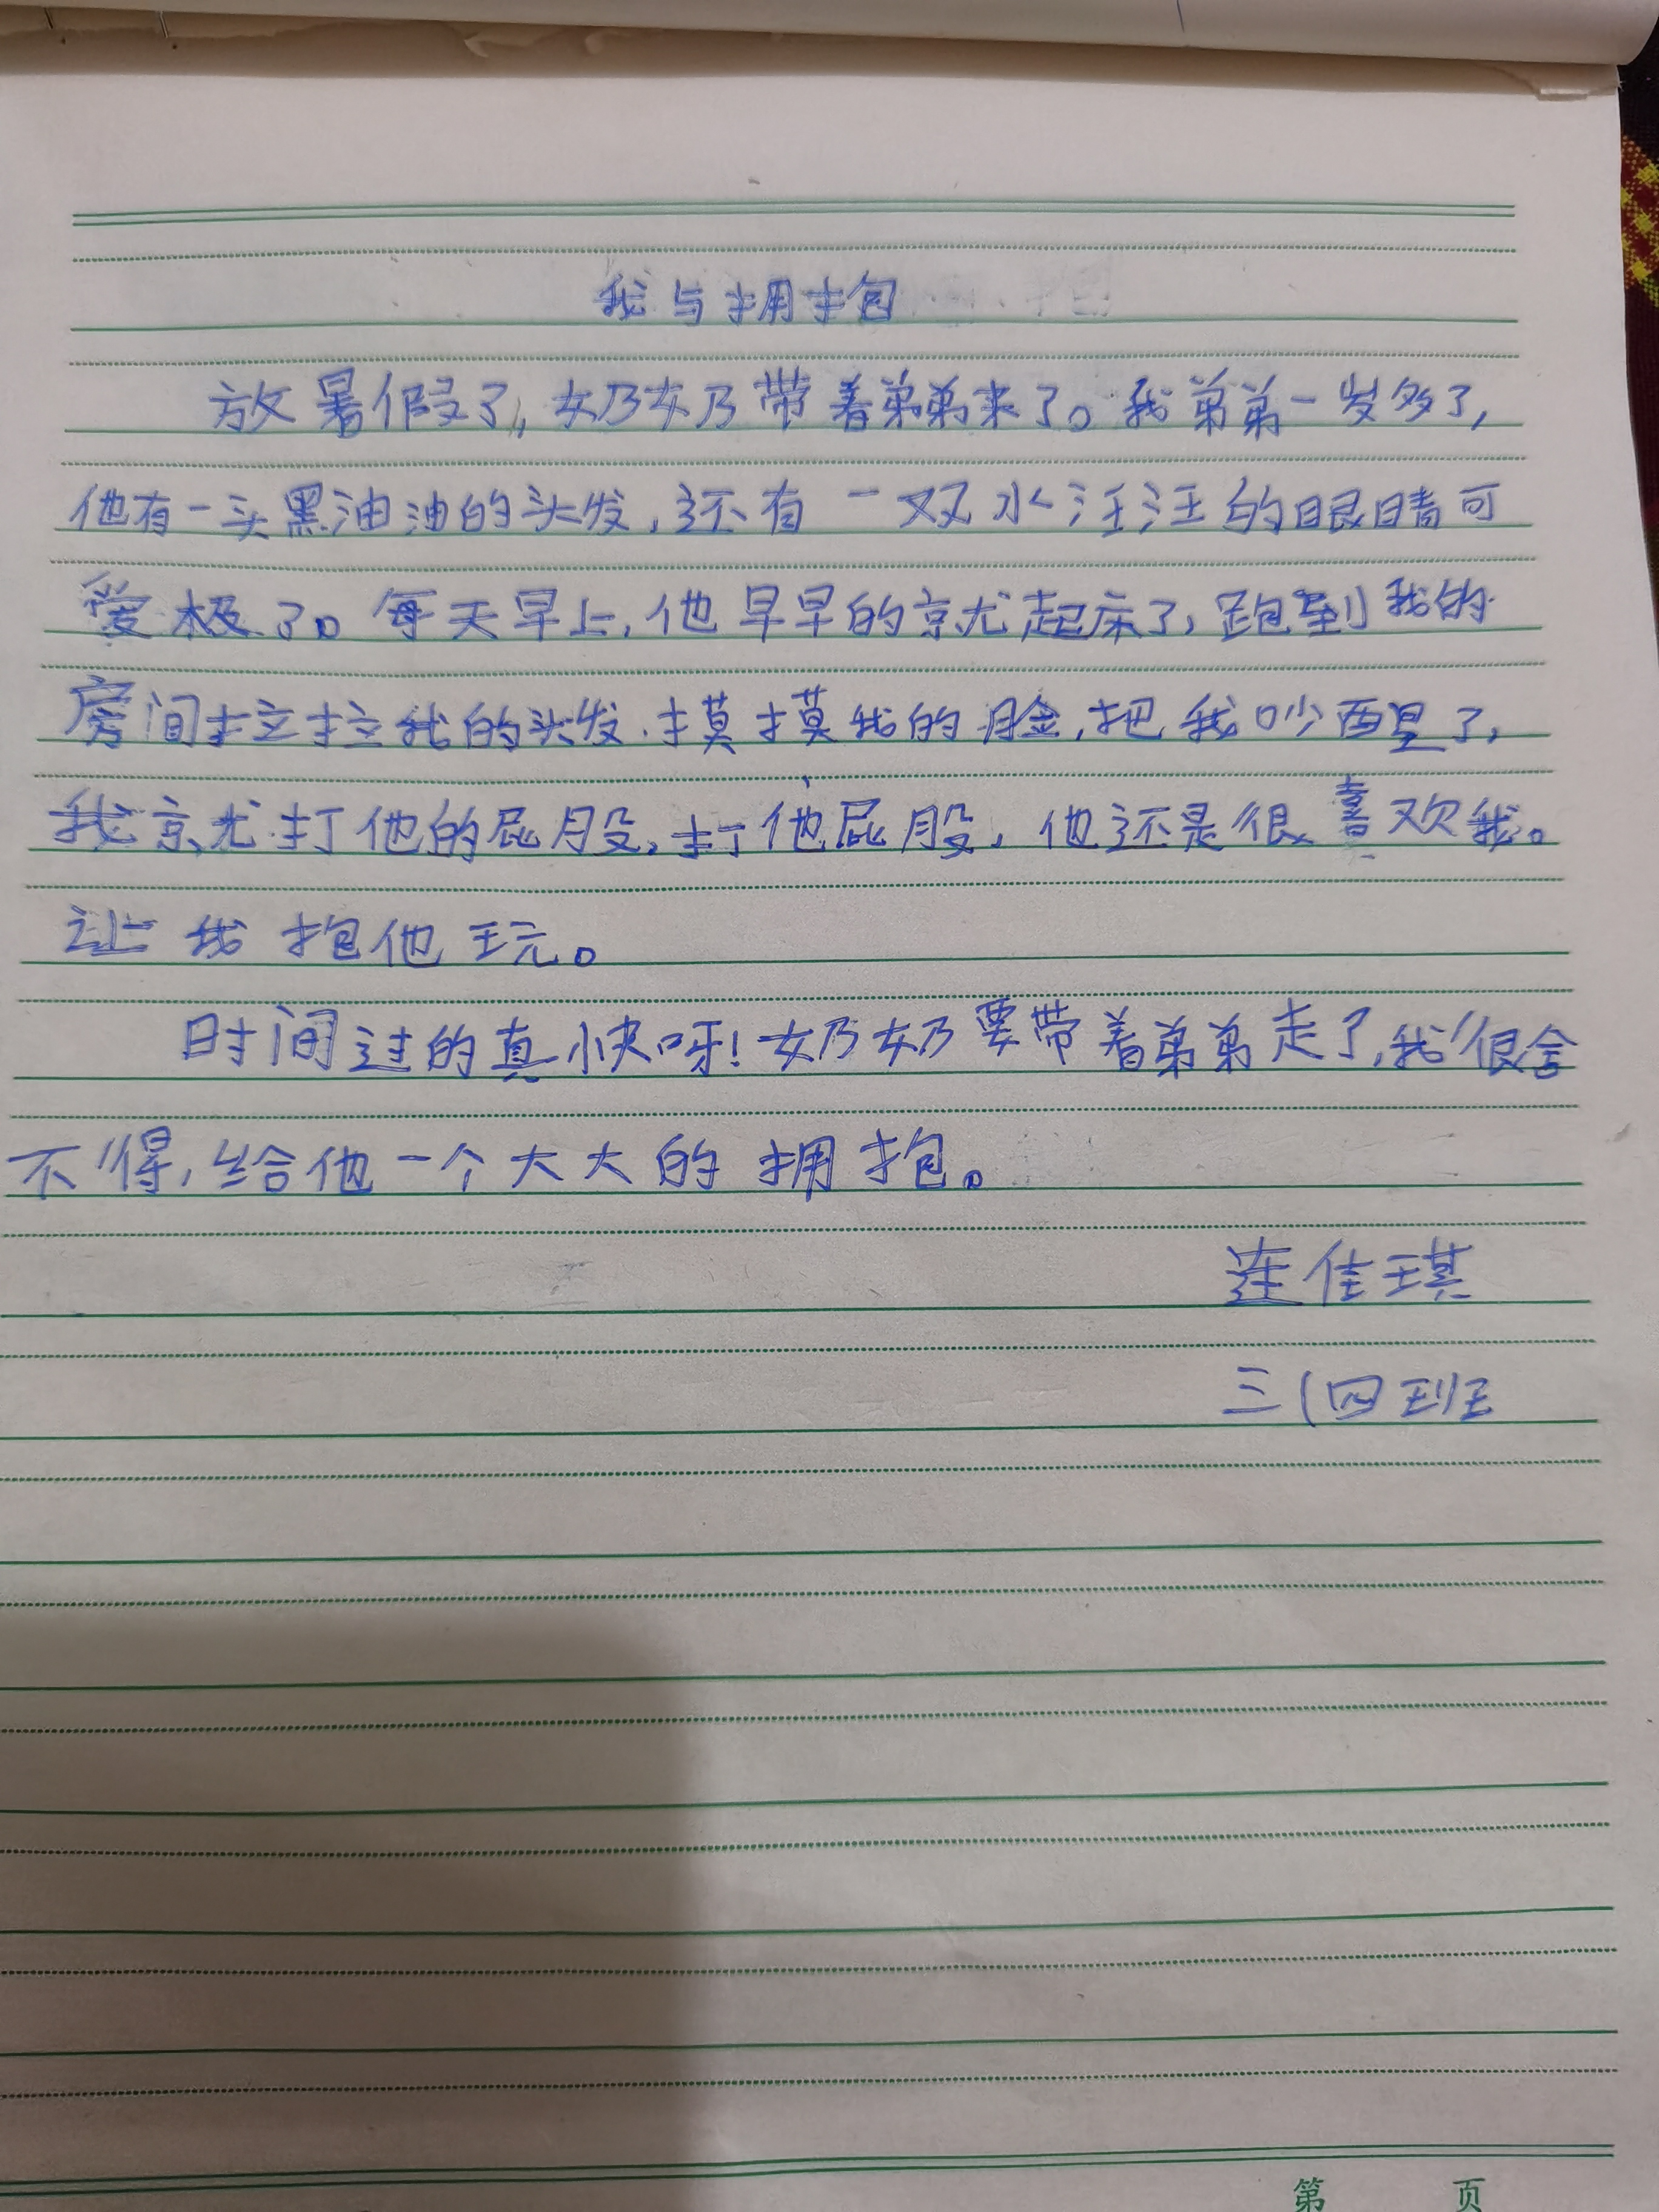 我与拥抱
放暑假了,奶奶带着弟弟来了。我弟弟一岁多了,
他有一头黑油油的头发,还有一双水汪汪的眼睛可
爱极了。每天早上,他早早的就起床了,跑到我的
房间拉拉我的头发.摸摸我的脸,把我吵醒了,
我就打他的屁股,打他屁股,他还是很喜欢我。
让我抱他玩。
时间过的真快呀!奶奶要带着弟弟走了,我很舍
不得,给他一个大大的拥抱。
连佳琪
三(四班
第 页